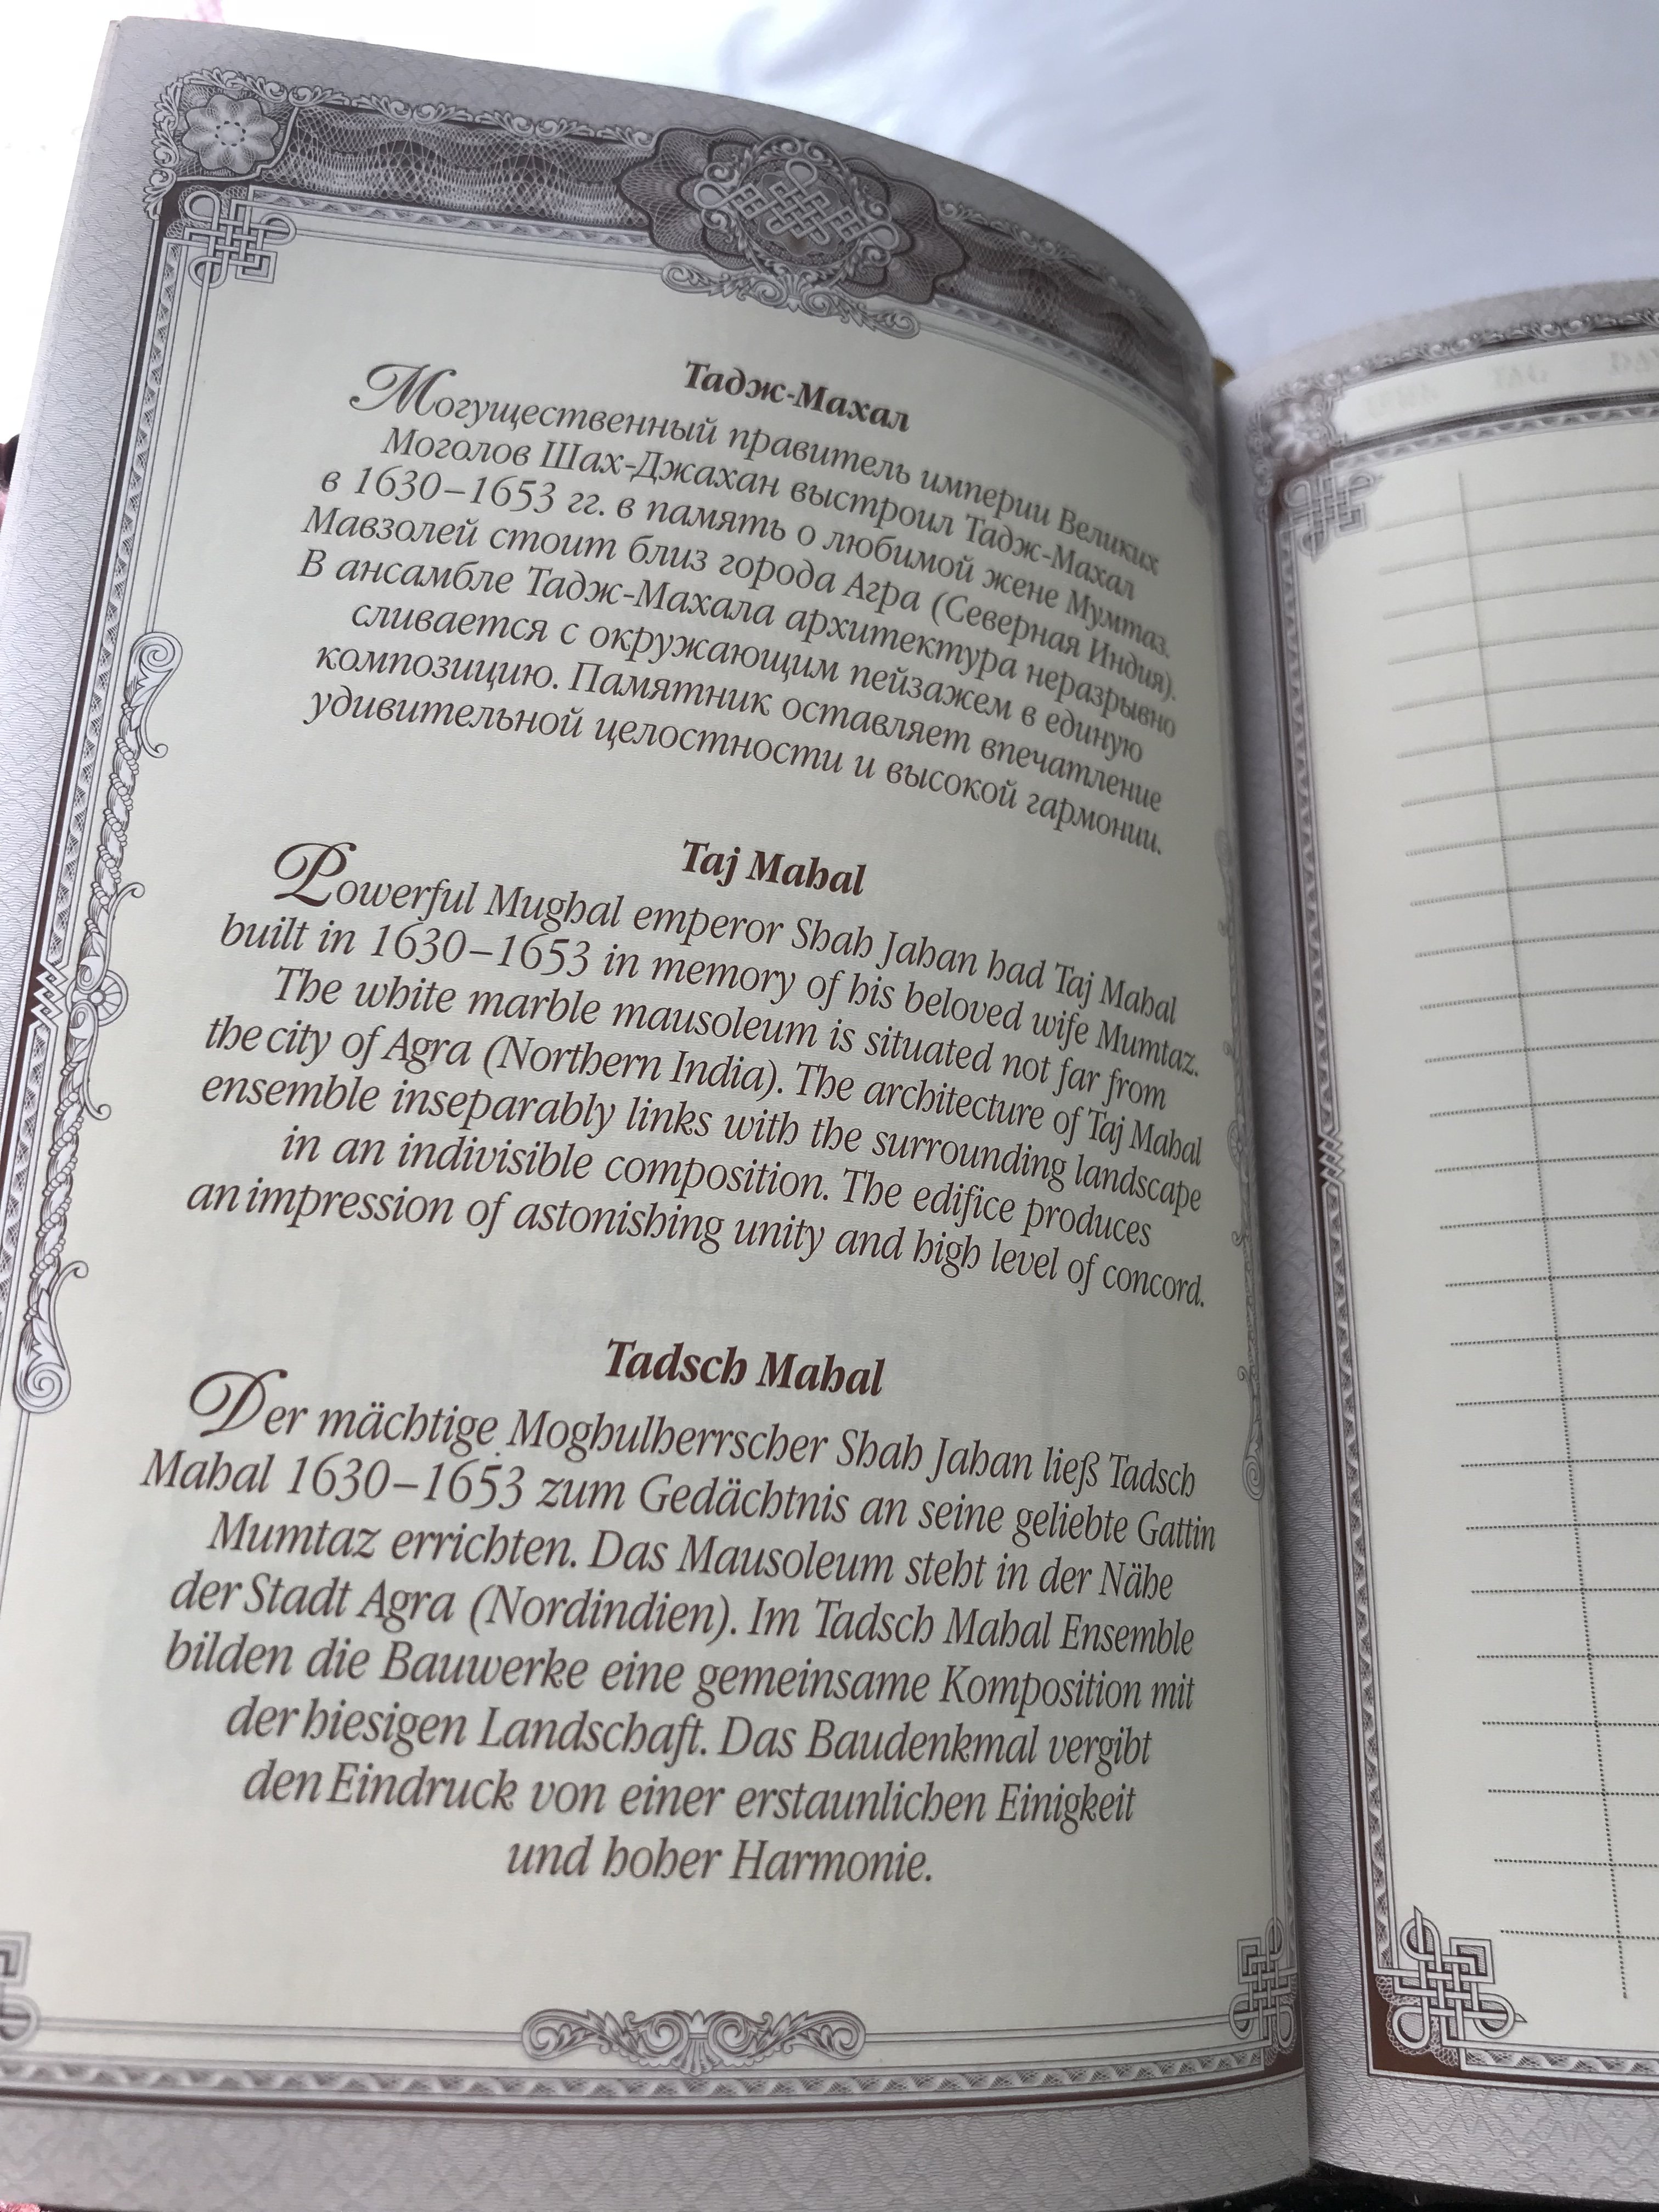 Тадж-Махал
Могущественный правитель империи Великих
Моголов Шах-Джахан выстроил Тадж-Махал
в 1630–1653 гг. в память о любимой жене Мумтаз.
Мавзолей стоит близ города Агра (Северная Индия).
В ансамбле Тадж-Махала архитектура неразрывно
сливается с окружающим пейзажем в единую
композицию. Памятник оставляет впечатление
удивительной целостности и высокой гармонии.
Taj Mahal
Powerful Mughal emperor Shah Jahan had Taj Mahal
built in 1630–1653 in memory of his beloved wife Mumtaz.
The white marble mausoleum is situated not far from
the city of Agra (Northern India). The architecture of Taj Mahal
ensemble inseparably links with the surrounding landscape
in an indivisible composition. The edifice produces
an impression of astonishing unity and high level of concord.
Tadsch Mahal
Der mächtige Moghulherrscher Shah Jahan ließ Tadsch
Mahal 1630–1653 zum Gedächtnis an seine geliebte Gattin
Mumtaz errichten. Das Mausoleum steht in der Nähe
der Stadt Agra (Nordindien). Im Tadsch Mahal Ensemble
bilden die Bauwerke eine gemeinsame Komposition mit
der hiesigen Landschaft. Das Baudenkmal vergibt
den Eindruck von einer erstaunlichen Einigkeit
und hoher Harmonie.
TAG